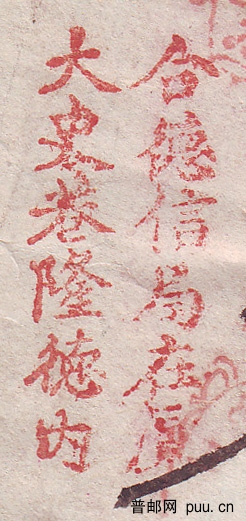 合德信局在厦
大史巷隆德内
普邮网 puu.cn